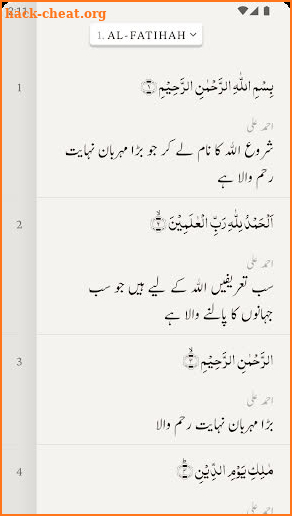 2:11
hack-cheat.org
1. AL-FATIHAH
1
بِسْمِ اللّٰهِ الرَّحْمٰنِ الرَّحِيْمِ ۝١
احمد علی
شروع الله کا نام لے کر جو بڑا مہربان نہایت
رحم والا ہے
2
اَلْحَمْدُ لِلّٰهِ رَبِّ الْعٰلَمِيْنَ ۝٢ۙ
احمد علی
سب تعریفیں الله کے لیے ہیں جو سب
جہانوں کا پالنے والا ہے
3
الرَّحْمٰنِ الرَّحِيْمِ ۝٣ۙ
احمد علی
بڑا مہربان نہایت رحم والا
4
مٰلِكِ يَوْمِ الدِّيْنِ ۝٤ؕ
احمد علی